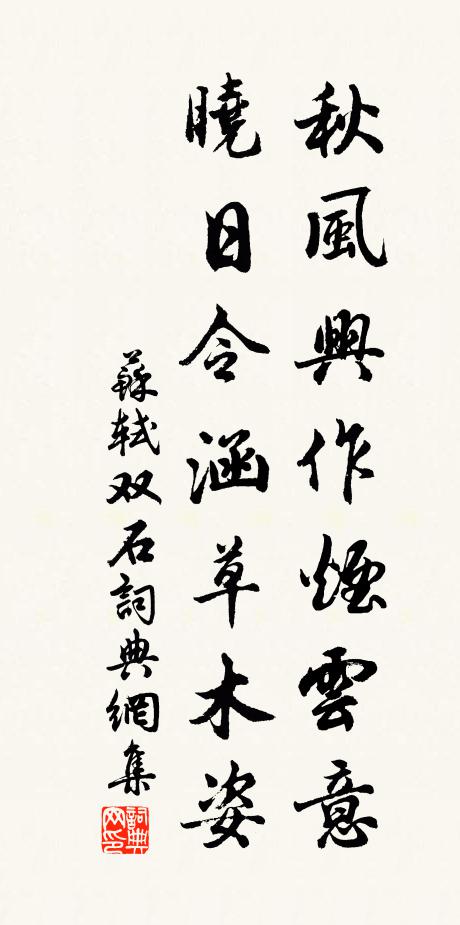 秋風興作煙雲意
曉日令涵草木姿
蘇軾双石詞典網集
詞典网印